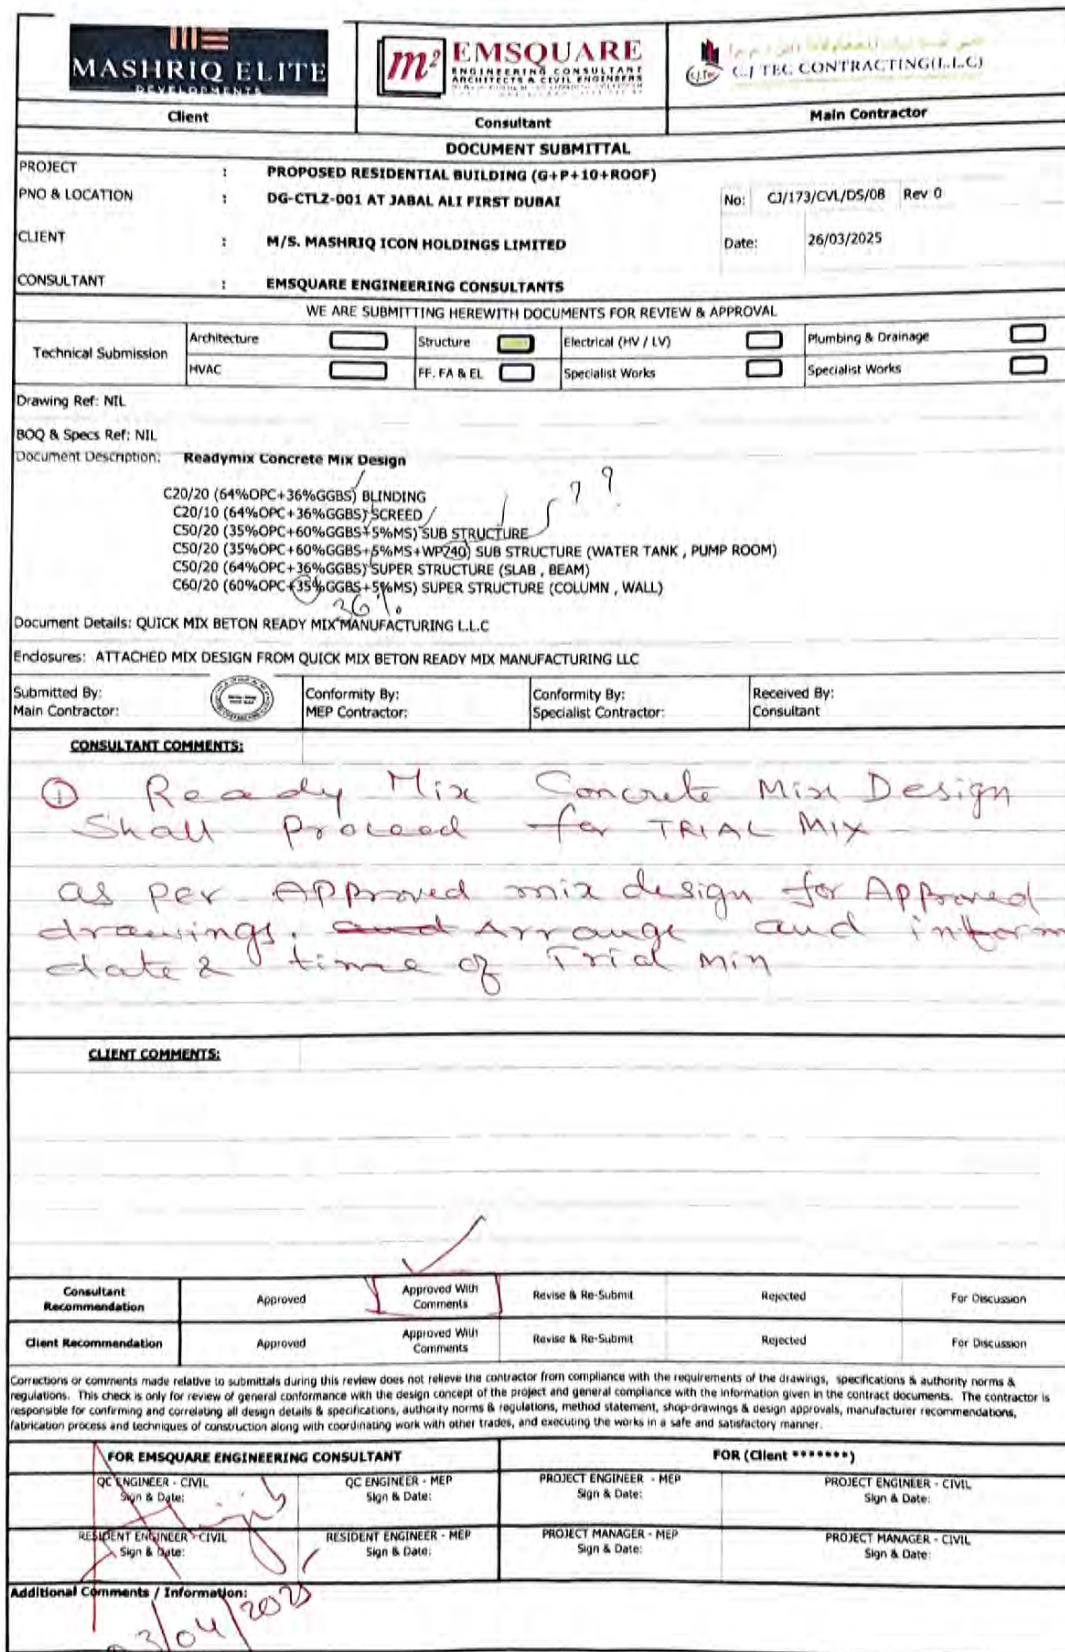 MASHRIQ ELITE
DEVELOPMENTS
m² EMSQUARE
ENGINEERING CONSULTANT
ARCHITECTS & CIVIL ENGINEERS
C.J TEC CONTRACTING(L.L.C)
Client Consultant Main Contractor
DOCUMENT SUBMITTAL
PROJECT : PROPOSED RESIDENTIAL BUILDING (G+P+10+ROOF)
PNO & LOCATION : DG-CTLZ-001 AT JABAL ALI FIRST DUBAI No: CJ/173/CVL/DS/08 Rev 0
CLIENT : M/S. MASHRIQ ICON HOLDINGS LIMITED Date: 26/03/2025
CONSULTANT : EMSQUARE ENGINEERING CONSULTANTS
WE ARE SUBMITTING HEREWITH DOCUMENTS FOR REVIEW & APPROVAL
Technical Submission
Architecture Structure Electrical (HV / LV) Plumbing & Drainage
HVAC FF. FA & EL Specialist Works Specialist Works
Drawing Ref: NIL
BOQ & Specs Ref: NIL
Document Description: Readymix Concrete Mix Design
C20/20 (64%OPC+36%GGBS) BLINDING
C20/10 (64%OPC+36%GGBS) SCREED
C50/20 (35%OPC+60%GGBS+5%MS) SUB STRUCTURE ? ?
C50/20 (35%OPC+60%GGBS+5%MS+WP240) SUB STRUCTURE (WATER TANK , PUMP ROOM)
C50/20 (64%OPC+36%GGBS) SUPER STRUCTURE (SLAB , BEAM)
C60/20 (60%OPC+35%GGBS+5%MS) SUPER STRUCTURE (COLUMN , WALL)
36%
Document Details: QUICK MIX BETON READY MIX MANUFACTURING L.L.C
Enclosures: ATTACHED MIX DESIGN FROM QUICK MIX BETON READY MIX MANUFACTURING LLC
Submitted By: Conformity By: Conformity By: Received By:
Main Contractor: MEP Contractor: Specialist Contractor: Consultant
CONSULTANT COMMENTS:
① Ready Mix Concrete Mix Design
Shall Proceed for TRIAL MIX
as per APProved mix design for APProved
drawings. and Arrange and inform
date & time of Trial Min
CLIENT COMMENTS:
Consultant Recommendation Approved Approved With Comments Revise & Re-Submit Rejected For Discussion
Client Recommendation Approved Approved With Comments Revise & Re-Submit Rejected For Discussion
Corrections or comments made relative to submittals during this review does not relieve the contractor from compliance with the requirements of the drawings, specifications & authority norms &
regulations. This check is only for review of general conformance with the design concept of the project and general compliance with the information given in the contract documents. The contractor is
responsible for confirming and correlating all design details & specifications, authority norms & regulations, method statement, shop-drawings & design approvals, manufacturer recommendations,
fabrication process and techniques of construction along with coordinating work with other trades, and executing the works in a safe and satisfactory manner.
FOR EMSQUARE ENGINEERING CONSULTANT FOR (Client *******)
QC ENGINEER - CIVIL QC ENGINEER - MEP PROJECT ENGINEER - MEP PROJECT ENGINEER - CIVIL
Sign & Date: Sign & Date: Sign & Date: Sign & Date:
RESIDENT ENGINEER - CIVIL RESIDENT ENGINEER - MEP PROJECT MANAGER - MEP PROJECT MANAGER - CIVIL
Sign & Date: Sign & Date: Sign & Date: Sign & Date:
Additional Comments / Information:
03/04/2025